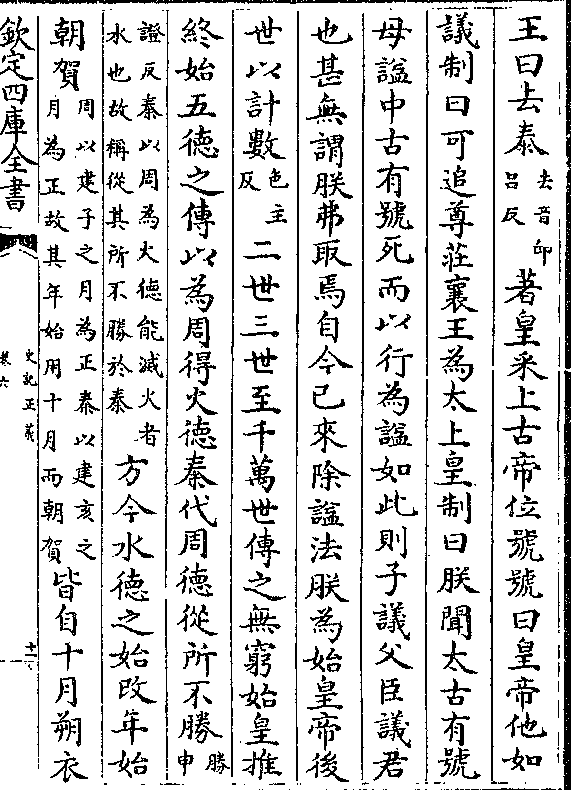 王曰去泰去音卭呂反著皇采上古帝位號號曰皇帝他如
議制曰可追尊莊襄王為太上皇制曰朕聞太古有號
母謚中古有號死而以行為謚如此則子議父臣議君
也甚無謂朕弗取焉自今已來除謚法朕為始皇帝後
世以計數色主反二世三世至千萬世傳之無窮始皇推
終始五德之傳以為周得火德秦代周德從所不勝勝申
證反秦以周為火德能滅火者水也故稱從其所不勝於秦方今水德之始改年始
朝賀周以建子之月為正秦以建亥之月為正故其年始用十月而朝賀皆自十月朔衣
欽定四庫全書
史記正義
卷六
十一